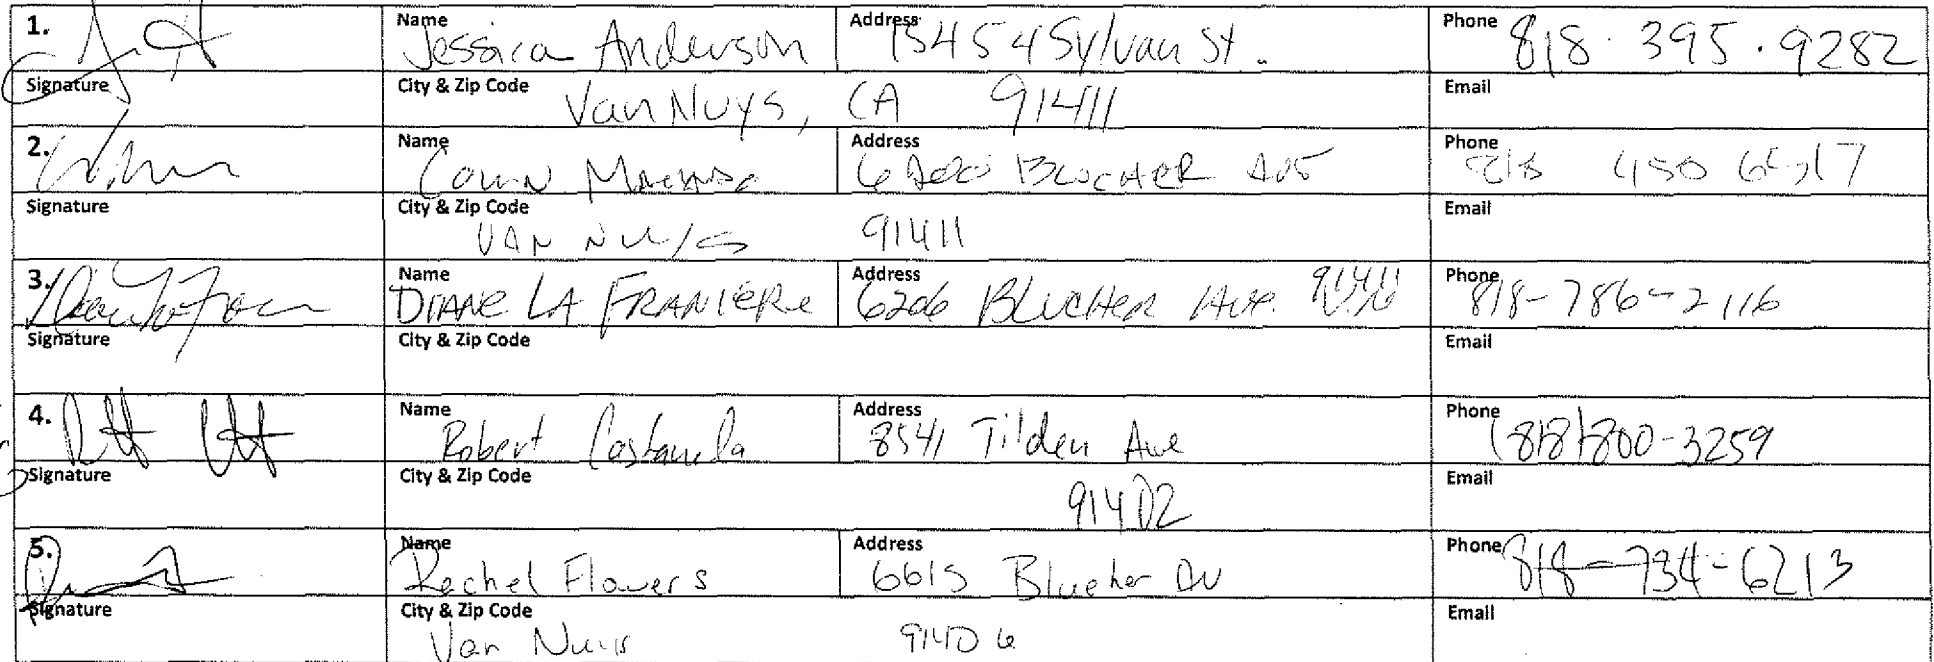 1. Name Jessica Anderson Address 15454 Sylvan St. Phone 818.395.9282
Signature City & Zip Code Van Nuys, CA 91411 Email
2. Name Address Blucher Ave Phone 818
Signature City & Zip Code Van Nuys 91411 Email
3. Name Diane La Franiere Address 6206 Blucher Ave. 91411 V.N Phone 818-786-2116
Signature City & Zip Code Email
4. Name Robert Castaneda Address 8541 Tilden Ave Phone (818)800-3259
Signature City & Zip Code 91402 Email
5. Name Rachel Flowers Address 6615 Blucher Av Phone 818-734-6213
Signature City & Zip Code Van Nuys 91406 Email